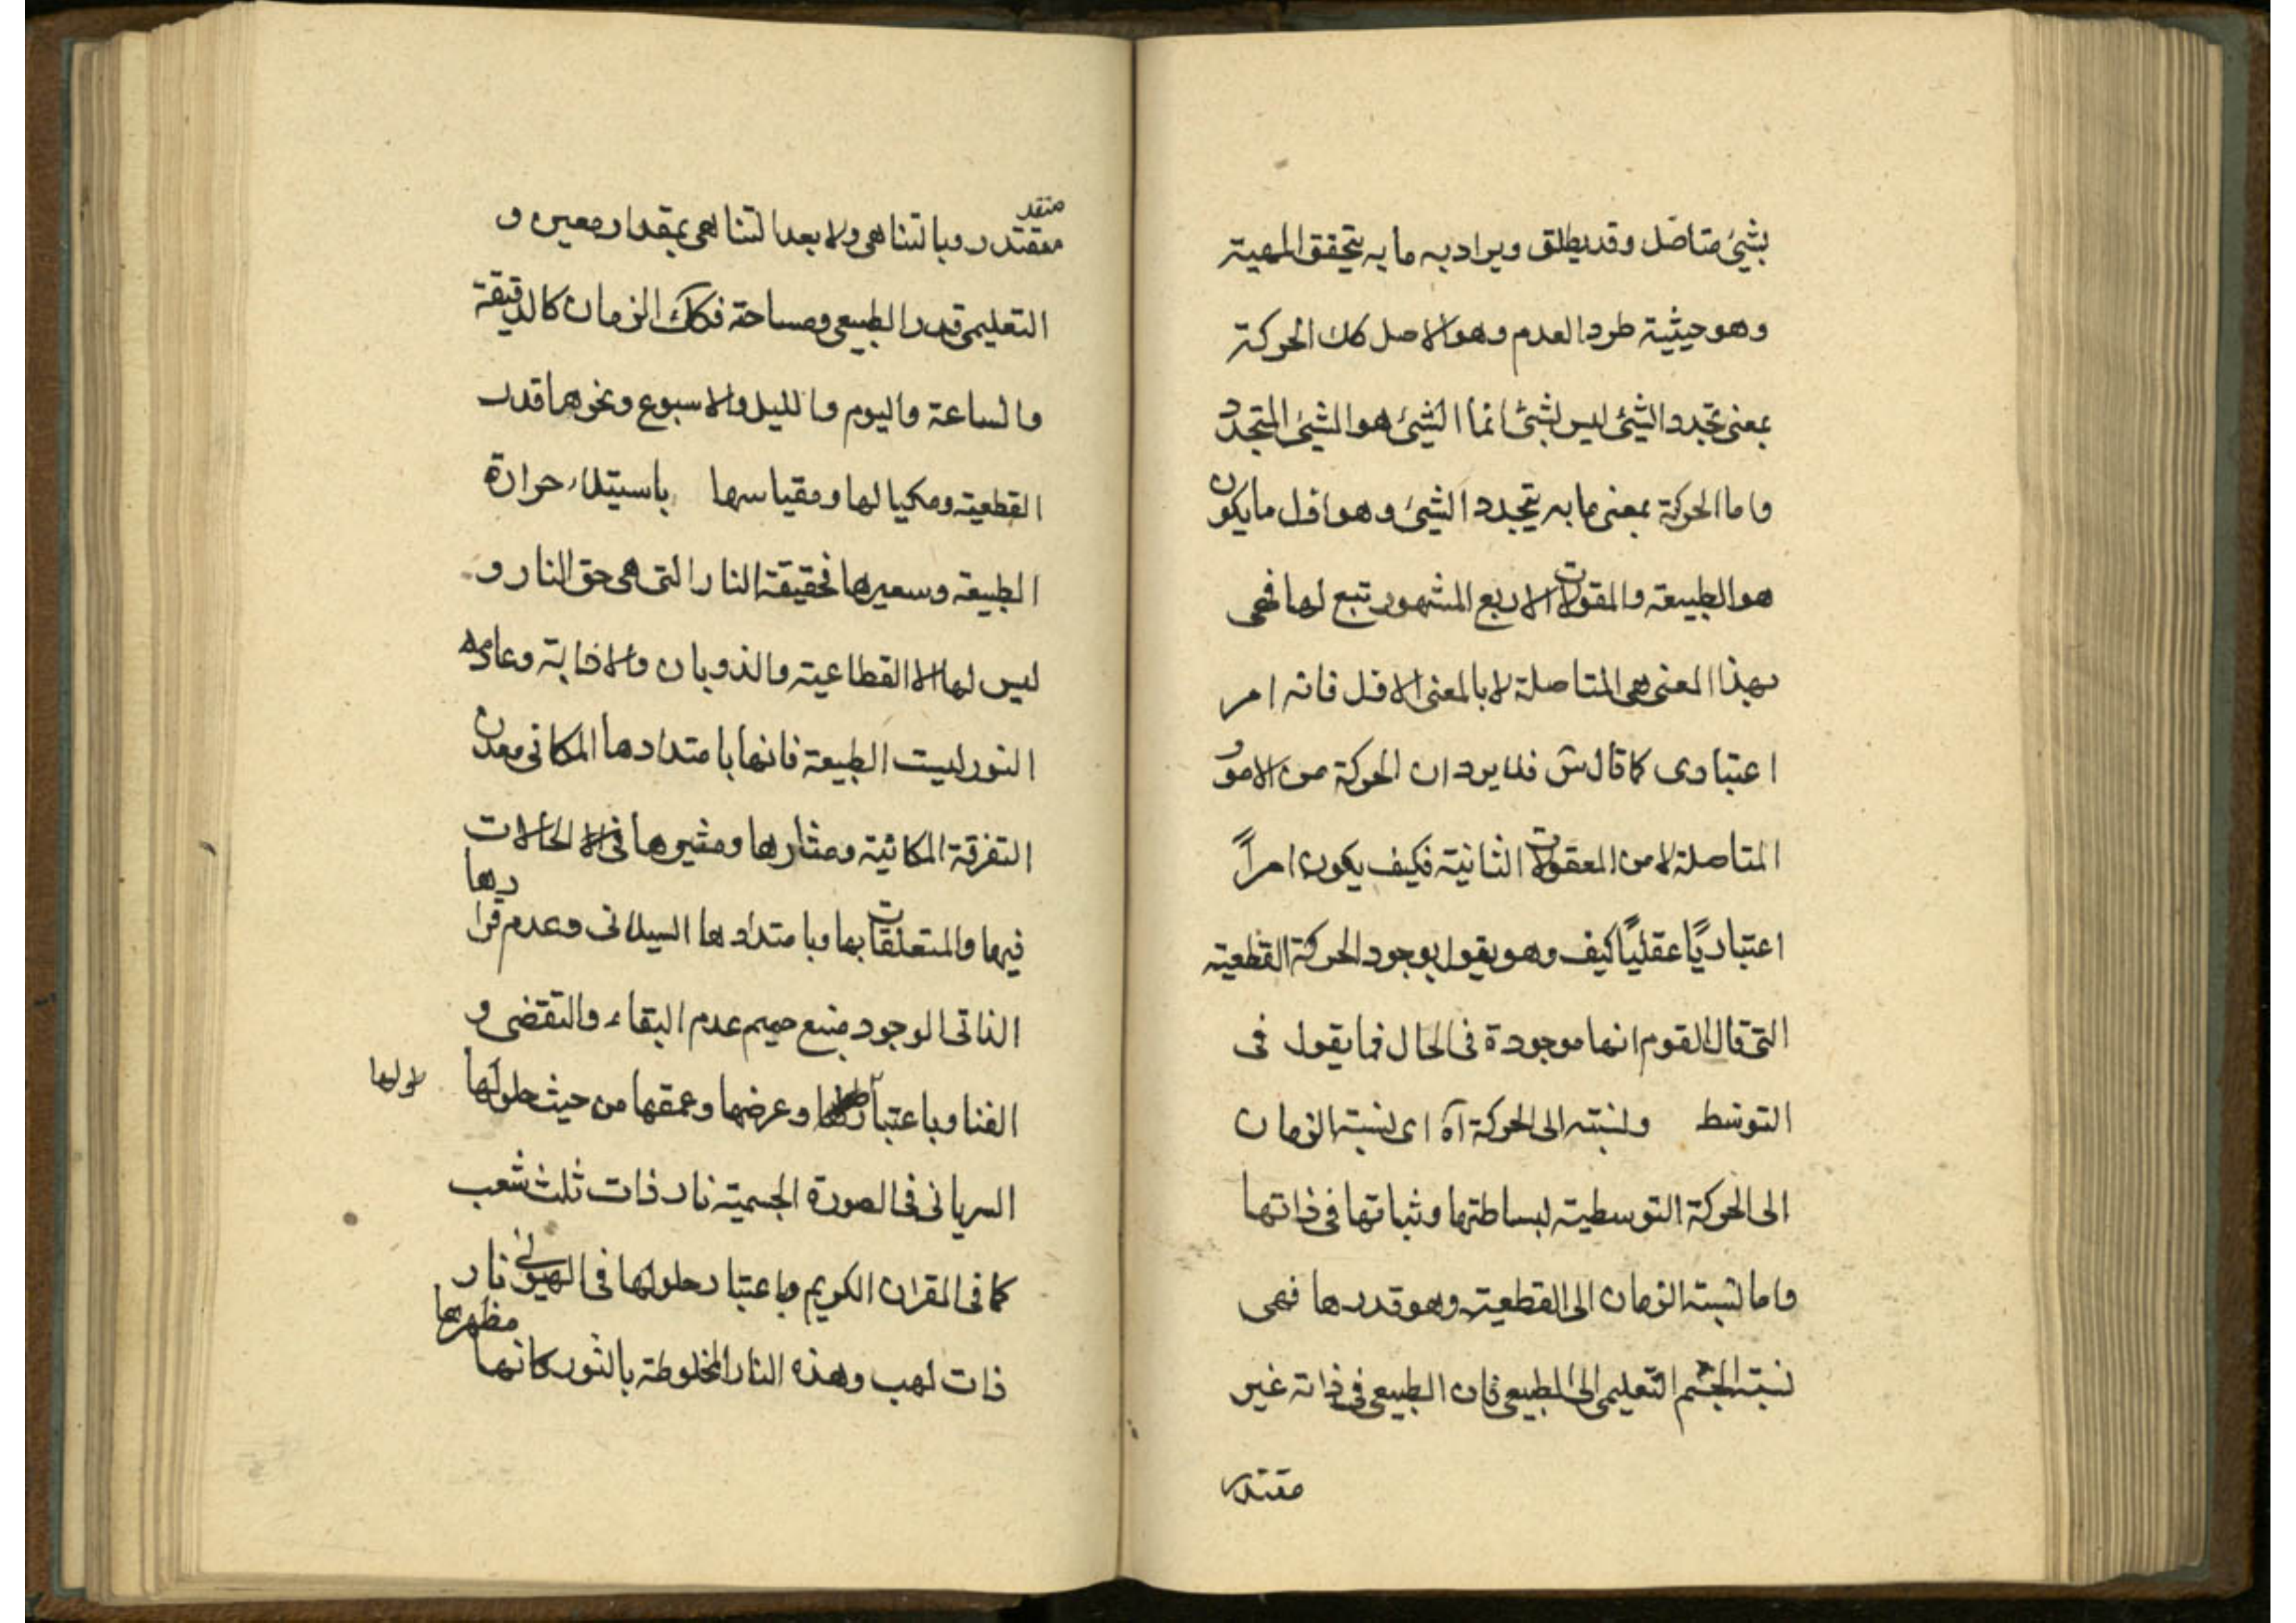 بشیئ متاصل وقد یطلق ویراد به ما به یتحقق المهیة
وهو حیثیة طرد العدم وهو الاصل کك الحرکة
بمعنی تجدد الشیئ لیس بشیئ انما الشیئ هو الشیئ المتجدد
واما الحرکة بمعنی ما به یتجدد الشیئ وهو اول ما یکون
هو الطبیعة والمقولات الاربع المشهور تتبع لها فهی
بهذا المعنی هی المتاصلة لا بالمعنی الاول فانه امر
اعتباری کما قال ش فلا یرد ان الحرکة من الامور
المتاصلة لا من المعقولات الثانیة فکیف یکون امراً
اعتباریًا عقلیًا کیف وهو یقول بوجود الحرکة القطعیة
التی قال القوم انها موجودة فی الحال فما یقول فی
التوسط ونسبته الی الحرکة آه ای نسبة الزمان
الی الحرکة التوسطیة لبساطتها وثباتها فی ذاتها
واما نسبة الزمان الی القطعیة وهو قدرها فهی
نسبة الجسم التعلیمی الی الطبیعی فان الطبیعی فی ذاته غیر
مقتدر
متقد
مقتدر وبا لتناهی ولا بعد التناهی بمقدار معین و
التعلیمی قدر الطبیعی ومساحته فکك الزمان کالدقیقة
والساعة والیوم واللیل والاسبوع ونحوها قدر
القطعیة ومکیالها ومقیاسها باستیلاء حرارة
الطبیعة وسعیرها فحقیقة النار التی هی حق النار و
لیس لها الا القطاعیة والذوبان والاذابة وعادمه
النور لیست الطبیعة فانها بامتدادها المکانی معدن
التفرقة المکانیة ومثارها ومثیرها فی الا الحالات
فیها والمتعلقات بها وبامتدادها السیلانی وعدم قرارها
الذاتی الوجود منبع حمیم عدم البقاء والتقضی و
الفنا وباعتبار وعرضها وعمقها من حیث حلولها
السریانی فی الصورة الجسمیة نار ذات ثلث شعب
کما فی القران الکریم وباعتبار حلولها فی الهیولی نار
ذات لهب وهذه النار المخلوطة بالنور کانها مظهرها